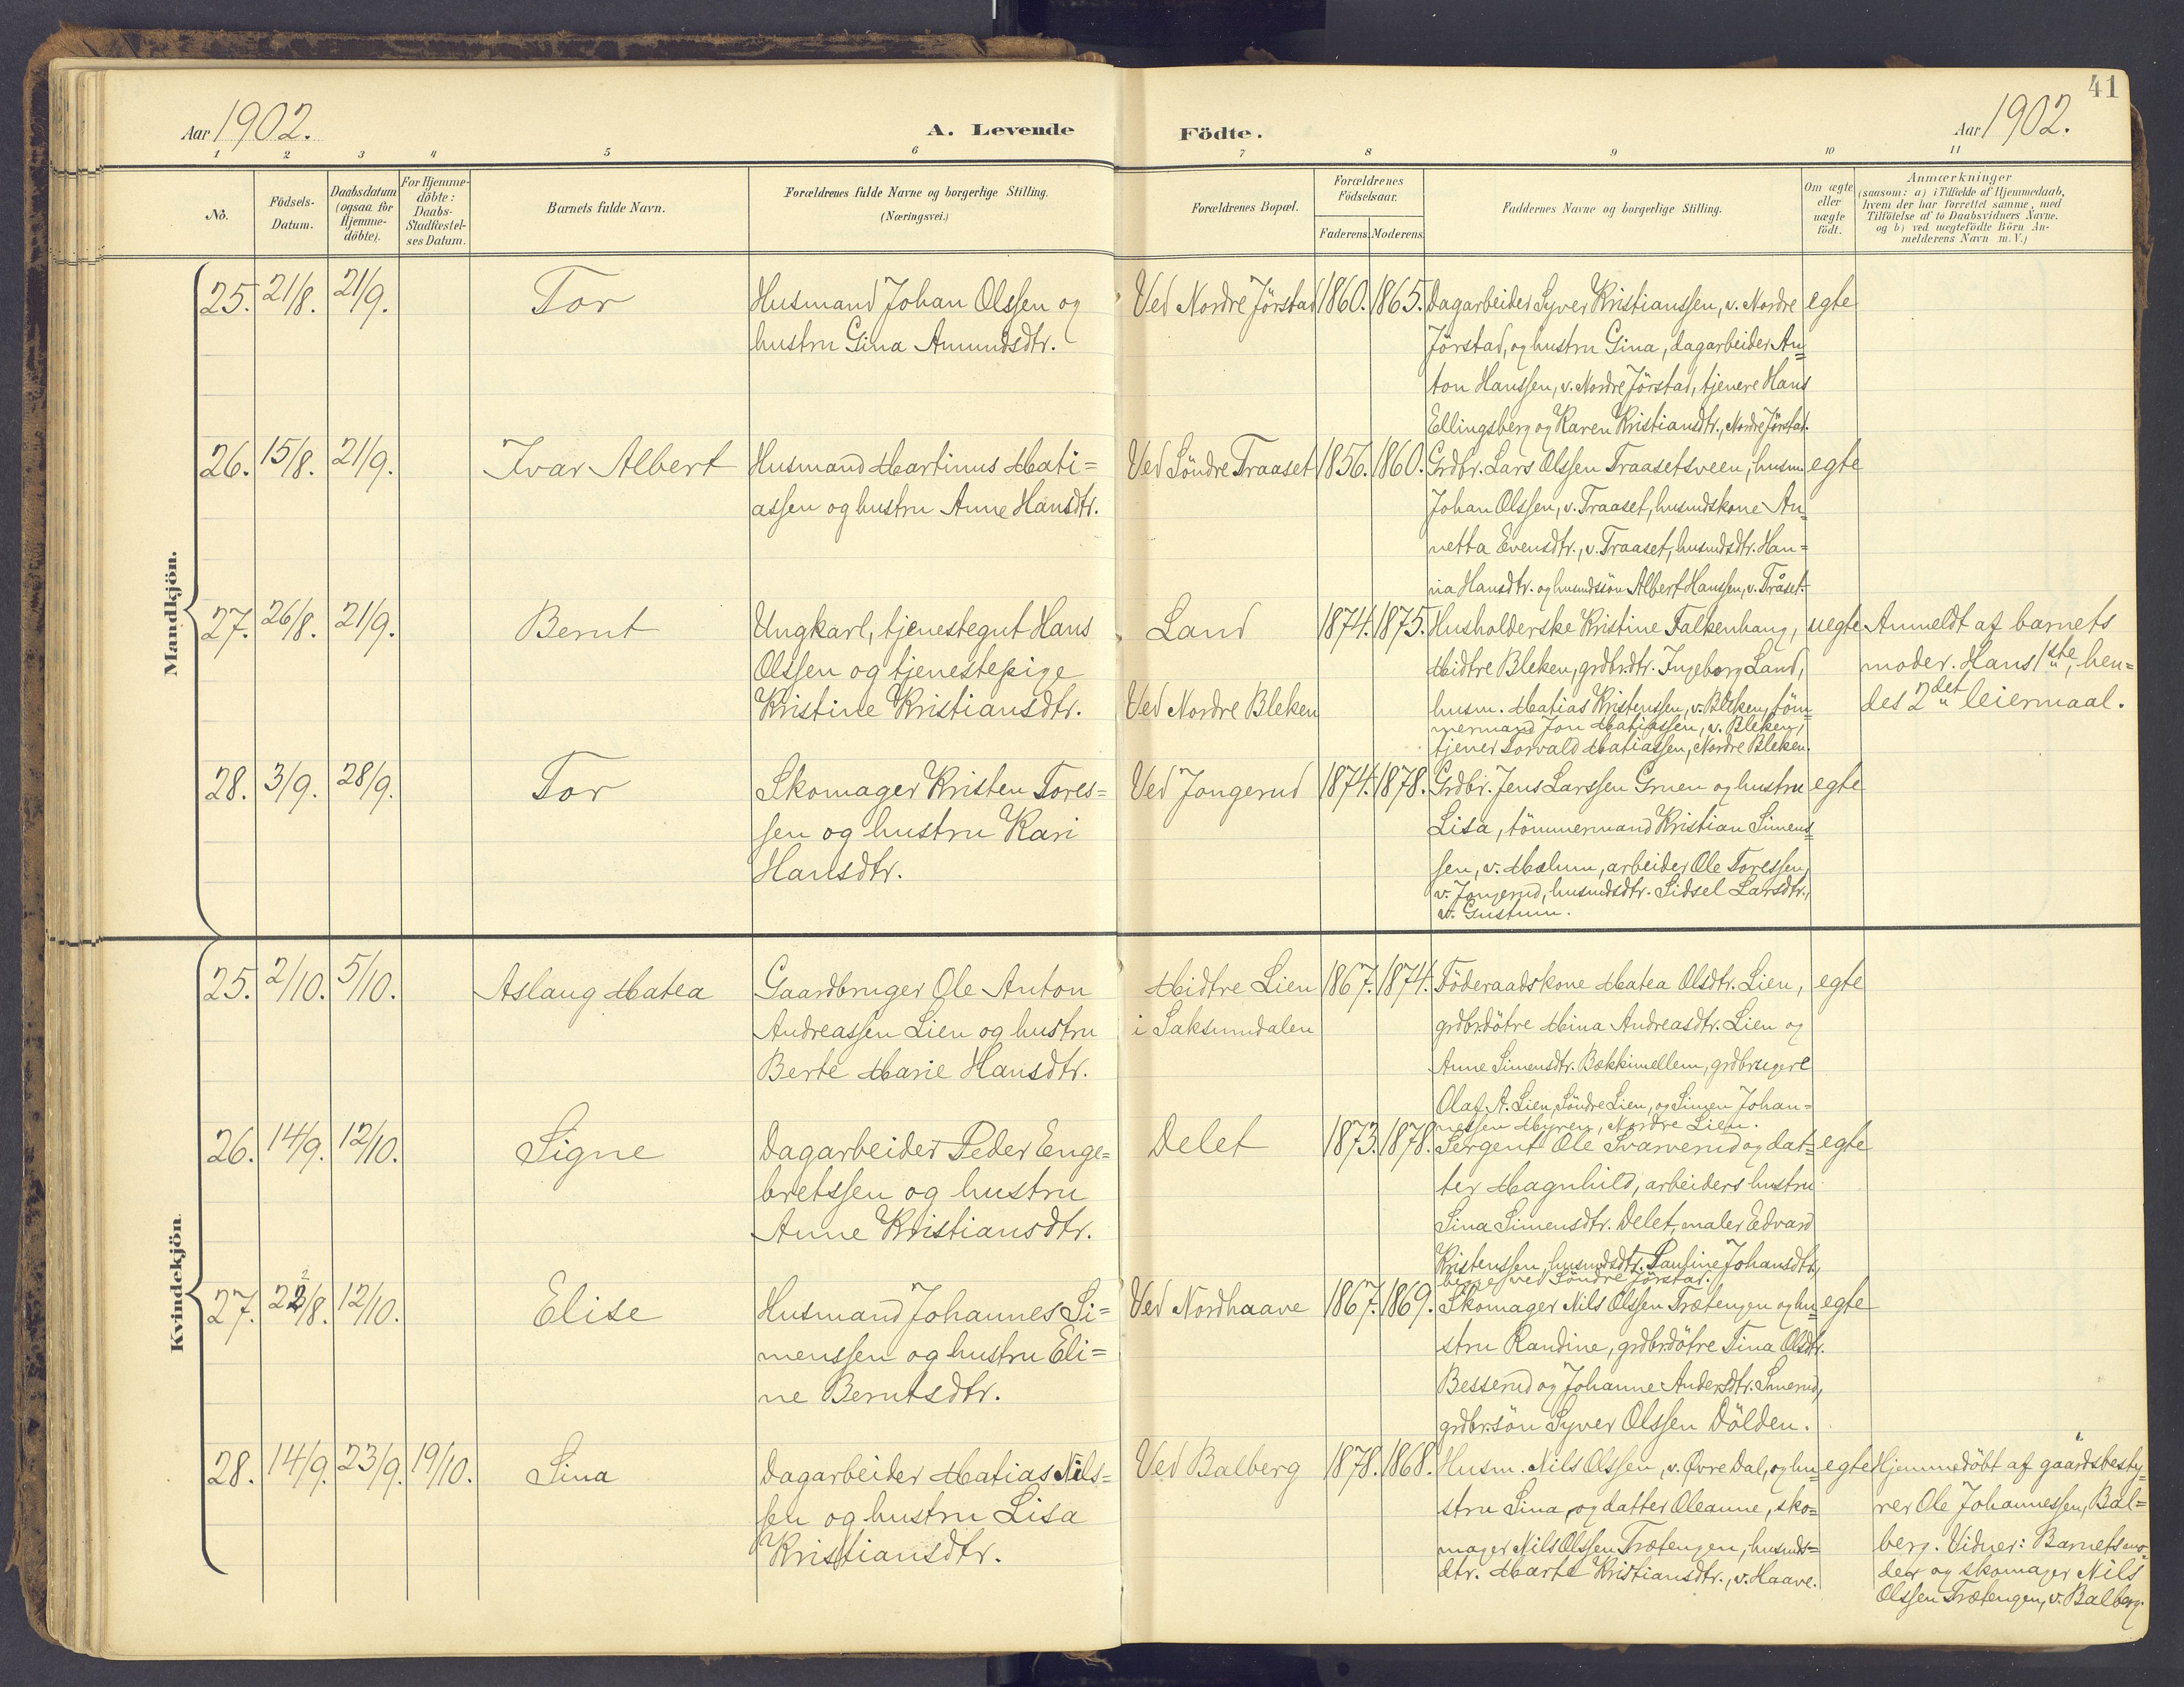 41
Aar 1902.
A. Levende Födte.
Aar 1902.
1 2 3 4 5 6 7 8 9 10 11
No.
Födsels-
Datum.
Daabsdatum
(ogsaa for
Hjemme-
döbte).
For Hjemme-
döbte:
Daabs-
Stadfæstel-
ses Datum.
Barnets fulde Navn.
Forældrenes fulde Navne og borgerlige Stilling.
(Næringsvei.)
Forældrenes Bopæl.
Forældrenes
Födselsaar.
Faderens. Moderens.
Faddernes Navne og borgerlige Stilling.
Om ægte
eller
uægte
födt.
Anmærkninger
(saasom: a) i Tilfælde af Hjemmedaab,
hvem der har forrettet samme, med
Tilföielse af to Daabsvidners Navne.
og b) ved uægtefödte Börn An-
melderens Navn m. V.)
Mandkjön.
25. 21/8. 21/9.
Tor
Husmand Johan Olssen og
hustru Gina Amundsdtr.
Ved Nordre Jörstad
1860. 1865.
Dagarbeider Syver Kristianssen, v. Nordre
Jörstad, og hustru Gina, dagarbeider An=
ton Hanssen, v. Nordre Jörstad, tjenere Hans
Ellingsberg og Karen Kristiansdtr., Nordre Jörstad.
egte
26. 15/8. 21/9.
Ivar Albert
Husmand Martinus Mati=
assen og hustru Anne Hansdtr.
Ved Söndre Traaset
1856. 1860.
Grdbr. Lars Olssen Traasetsveen, husm.
Johan Olssen, v. Traaset, husmdskone An=
netta Evensdtr., v. Traaset, husmdsdtr. Han=
na Hansdtr. og husmdssön Albert Hanssen, v. Tråset.
egte
27. 26/8. 21/9.
Bernt
Ungkarl, tjenestegut Hans
Olssen og tjenestepige
Kristine Kristiansdtr.
Land
Ved Nordre Bleken
1874. 1875.
Husholderske Kristine Falkenhaug,
Midtre Bleken, grdbr.dtr. Ingeborg Land,
husm. Matias Kristenssen, v. Bleken, töm=
mermand Jon Matiassen, v. Bleken,
tjener Torvald Matiassen, Nordre Bleken.
uegte
Anmeldt af barnets
moder. Hans 1ste, hen=
des 2det leiermaal.
28. 3/9. 28/9.
Tor
Skomager Kristen Tores=
sen og hustru Kari
Hansdtr.
Ved Jongerud
1874. 1878.
Grdbr. Jens Larssen Gruen og hustru
Lisa, tömmermand Kristian Simens=
sen, v. Mælum, arbeider Ole Toressen,
v. Jongerud, husmdsdtr. Sidsel Larsdtr.,
v. Gustum.
egte
Kvindekjön.
25. 2/10. 5/10.
Aslaug Matea
Gaardbruger Ole Anton
Andreassen Lien og hustru
Berte Marie Hansdtr.
Midtre Lien
i Saksumdalen
1867. 1874.
Föderaadskone Matea Olsdtr. Lien,
grdbr.dötre Mina Andreasdtr. Lien og
Anne Simensdtr. Bækkimellem, grdbrugere
Olaf A. Lien, Söndre Lien, og Simen Johan=
nessen Myren, Nordre Lien.
egte
26. 14/9. 12/10.
Signe
Dagarbeider Peder Enge=
bretssen og hustru
Anne Kristiansdtr.
Delet
1873. 1878.
Sergent Ole Svarverud og dat=
ter Magnhild, arbeiders hustru
Sina Simensdtr. Delet, maler Edvard
Kristenssen, husmdsdtr. Pauline Johansdtr.,
begge ved Söndre Jörstad.
egte
27. 22/8. 12/10.
Elise
Husmand Johannes Si=
menssen og hustru Eli=
ne Berntsdtr.
Ved Nordhaave
1867. 1869.
Skomager Nils Olssen Trætengen og hu=
stru Randine, grdbr.dötre Tina Olsdtr.
Besserud og Johanne Andersdtr. Smerud,
grdbr.sön Syver Olssen Dölden.
egte
28. 14/9. 23/9. 19/10.
Sina
Dagarbeider Matias Nils=
sen og hustru Lisa
Kristiansdtr.
Ved Balberg
1878. 1868.
Husm. Nils Olssen, v. Øvre Dal, og hu=
stru Sina, og datter Oleanne, sko=
mager Nils Olssen Trætengen, husmds=
dtr. Marte Kristiansdtr., v. Haave.
egte
Hjemmedöbt af gaardsbesty=
rer Ole Johannessen, Bal=
berg. Vidner: Barnets mo=
der og skomager Nils
Olssen Trætengen, v. Balberg.